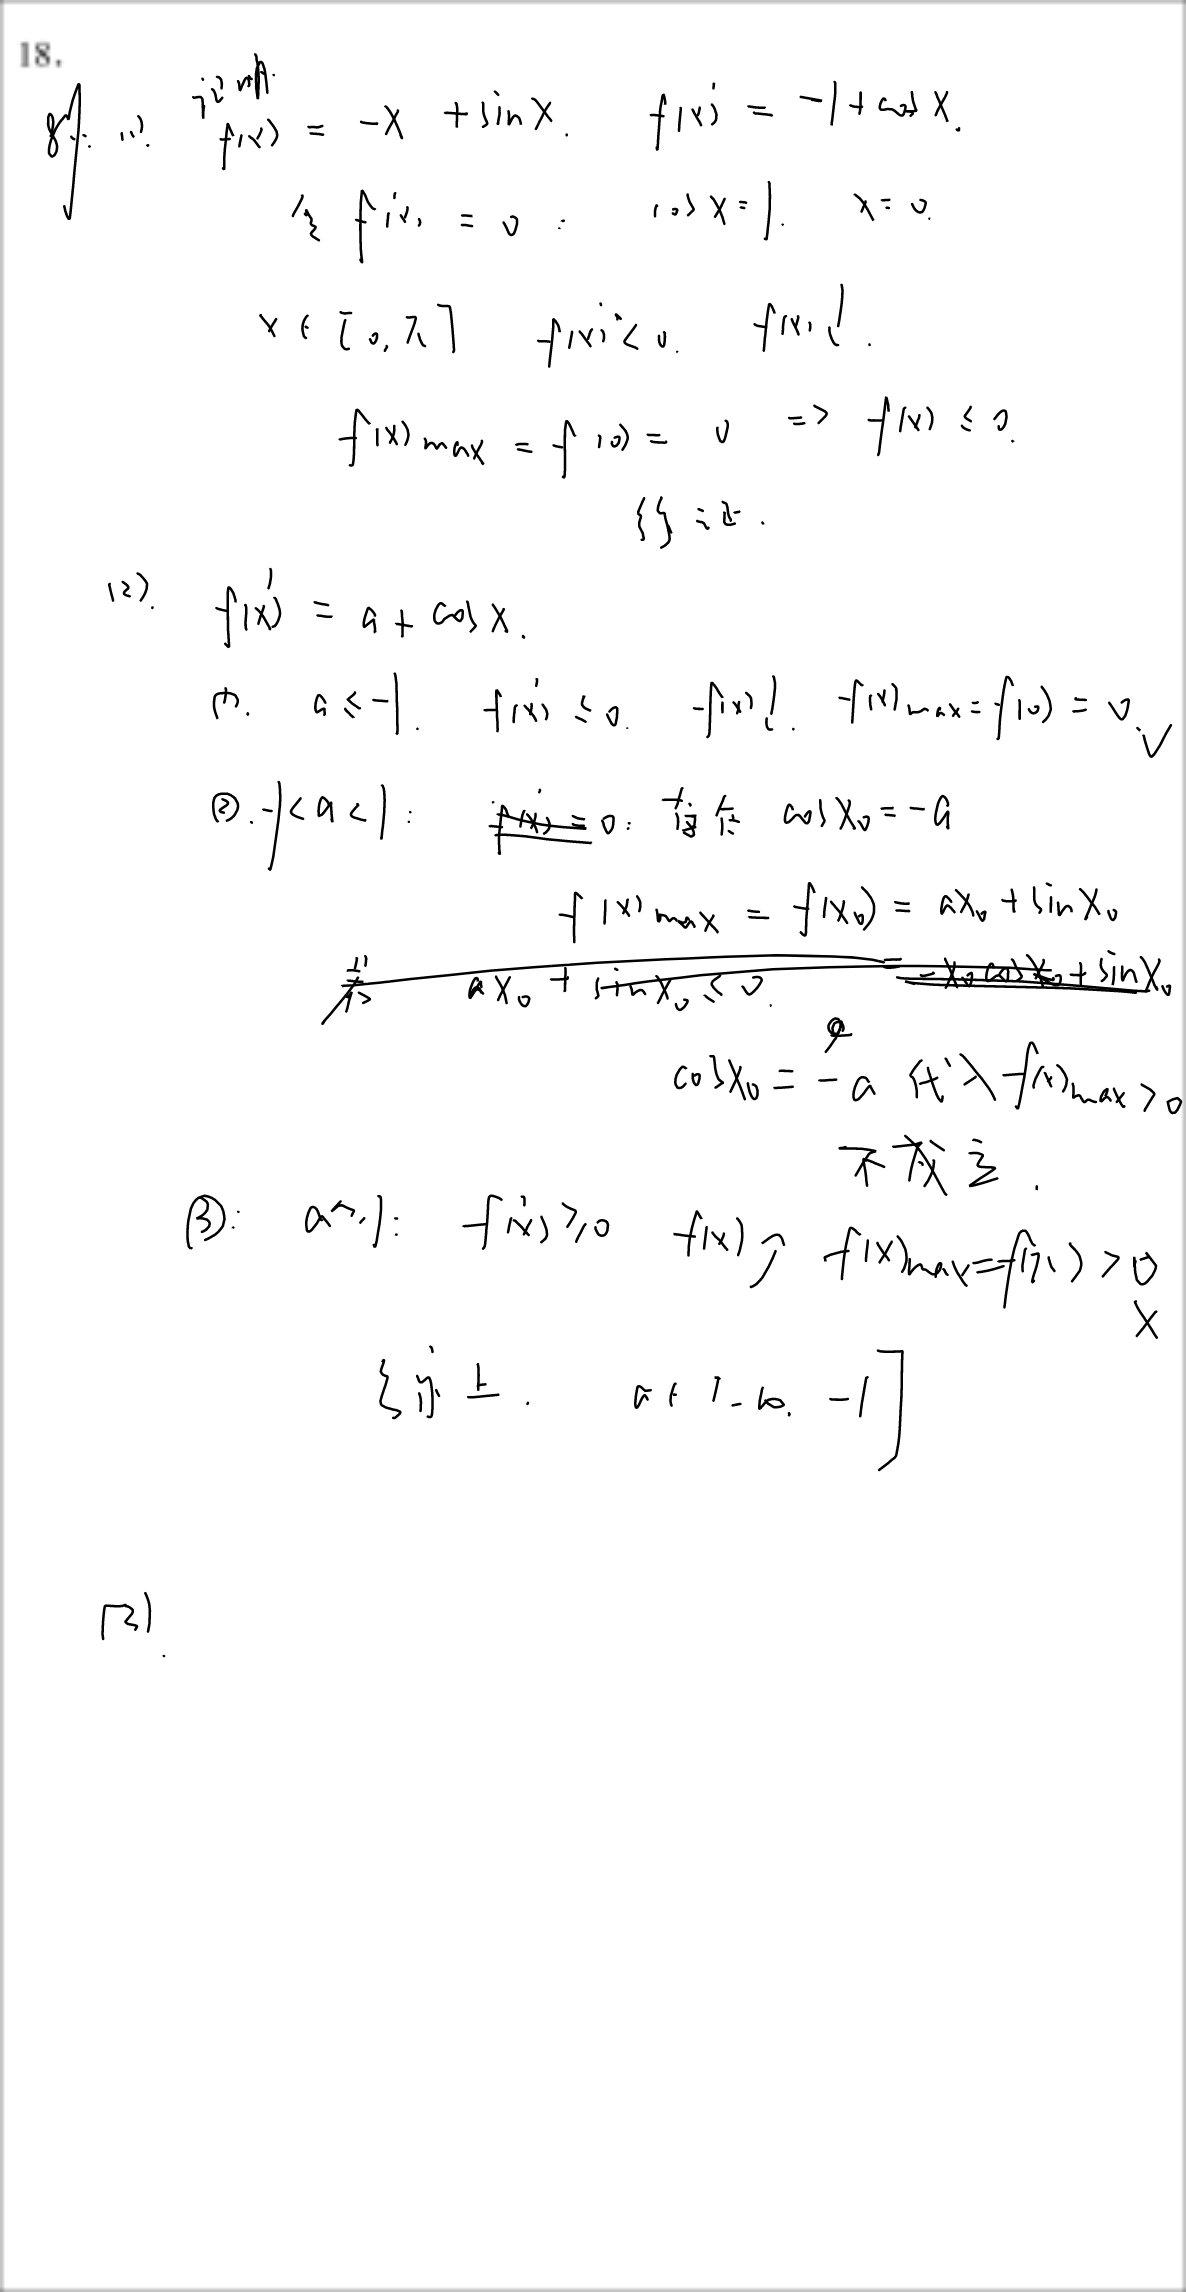 18.
解: (1). 证明: f(x) = -x + sinx. f(x)' = -1 + cosx.
令 f'(x) = 0: cosx = 1. x = 0.
x ∈ [0, π] f(x)' < 0. f(x)↓.
f(x)max = f(0) = 0 => f(x) ≤ 0.
得证.
(2). f(x)' = a + cosx.
①. a ≤ -1. f(x)' ≤ 0. f(x)↓. f(x)max = f(0) = 0. √
②. -1 < a < 1: 存在 cosx₀ = -a
f(x)max = f(x₀) = ax₀ + sinx₀
cosx₀ = -a 代入 f(x)max > 0
不成立.
③: a ≥ 1: f(x)' ≥ 0 f(x)↑ f(x)max = f(π) > 0
×
综上. a ∈ (-∞. -1]
(3).